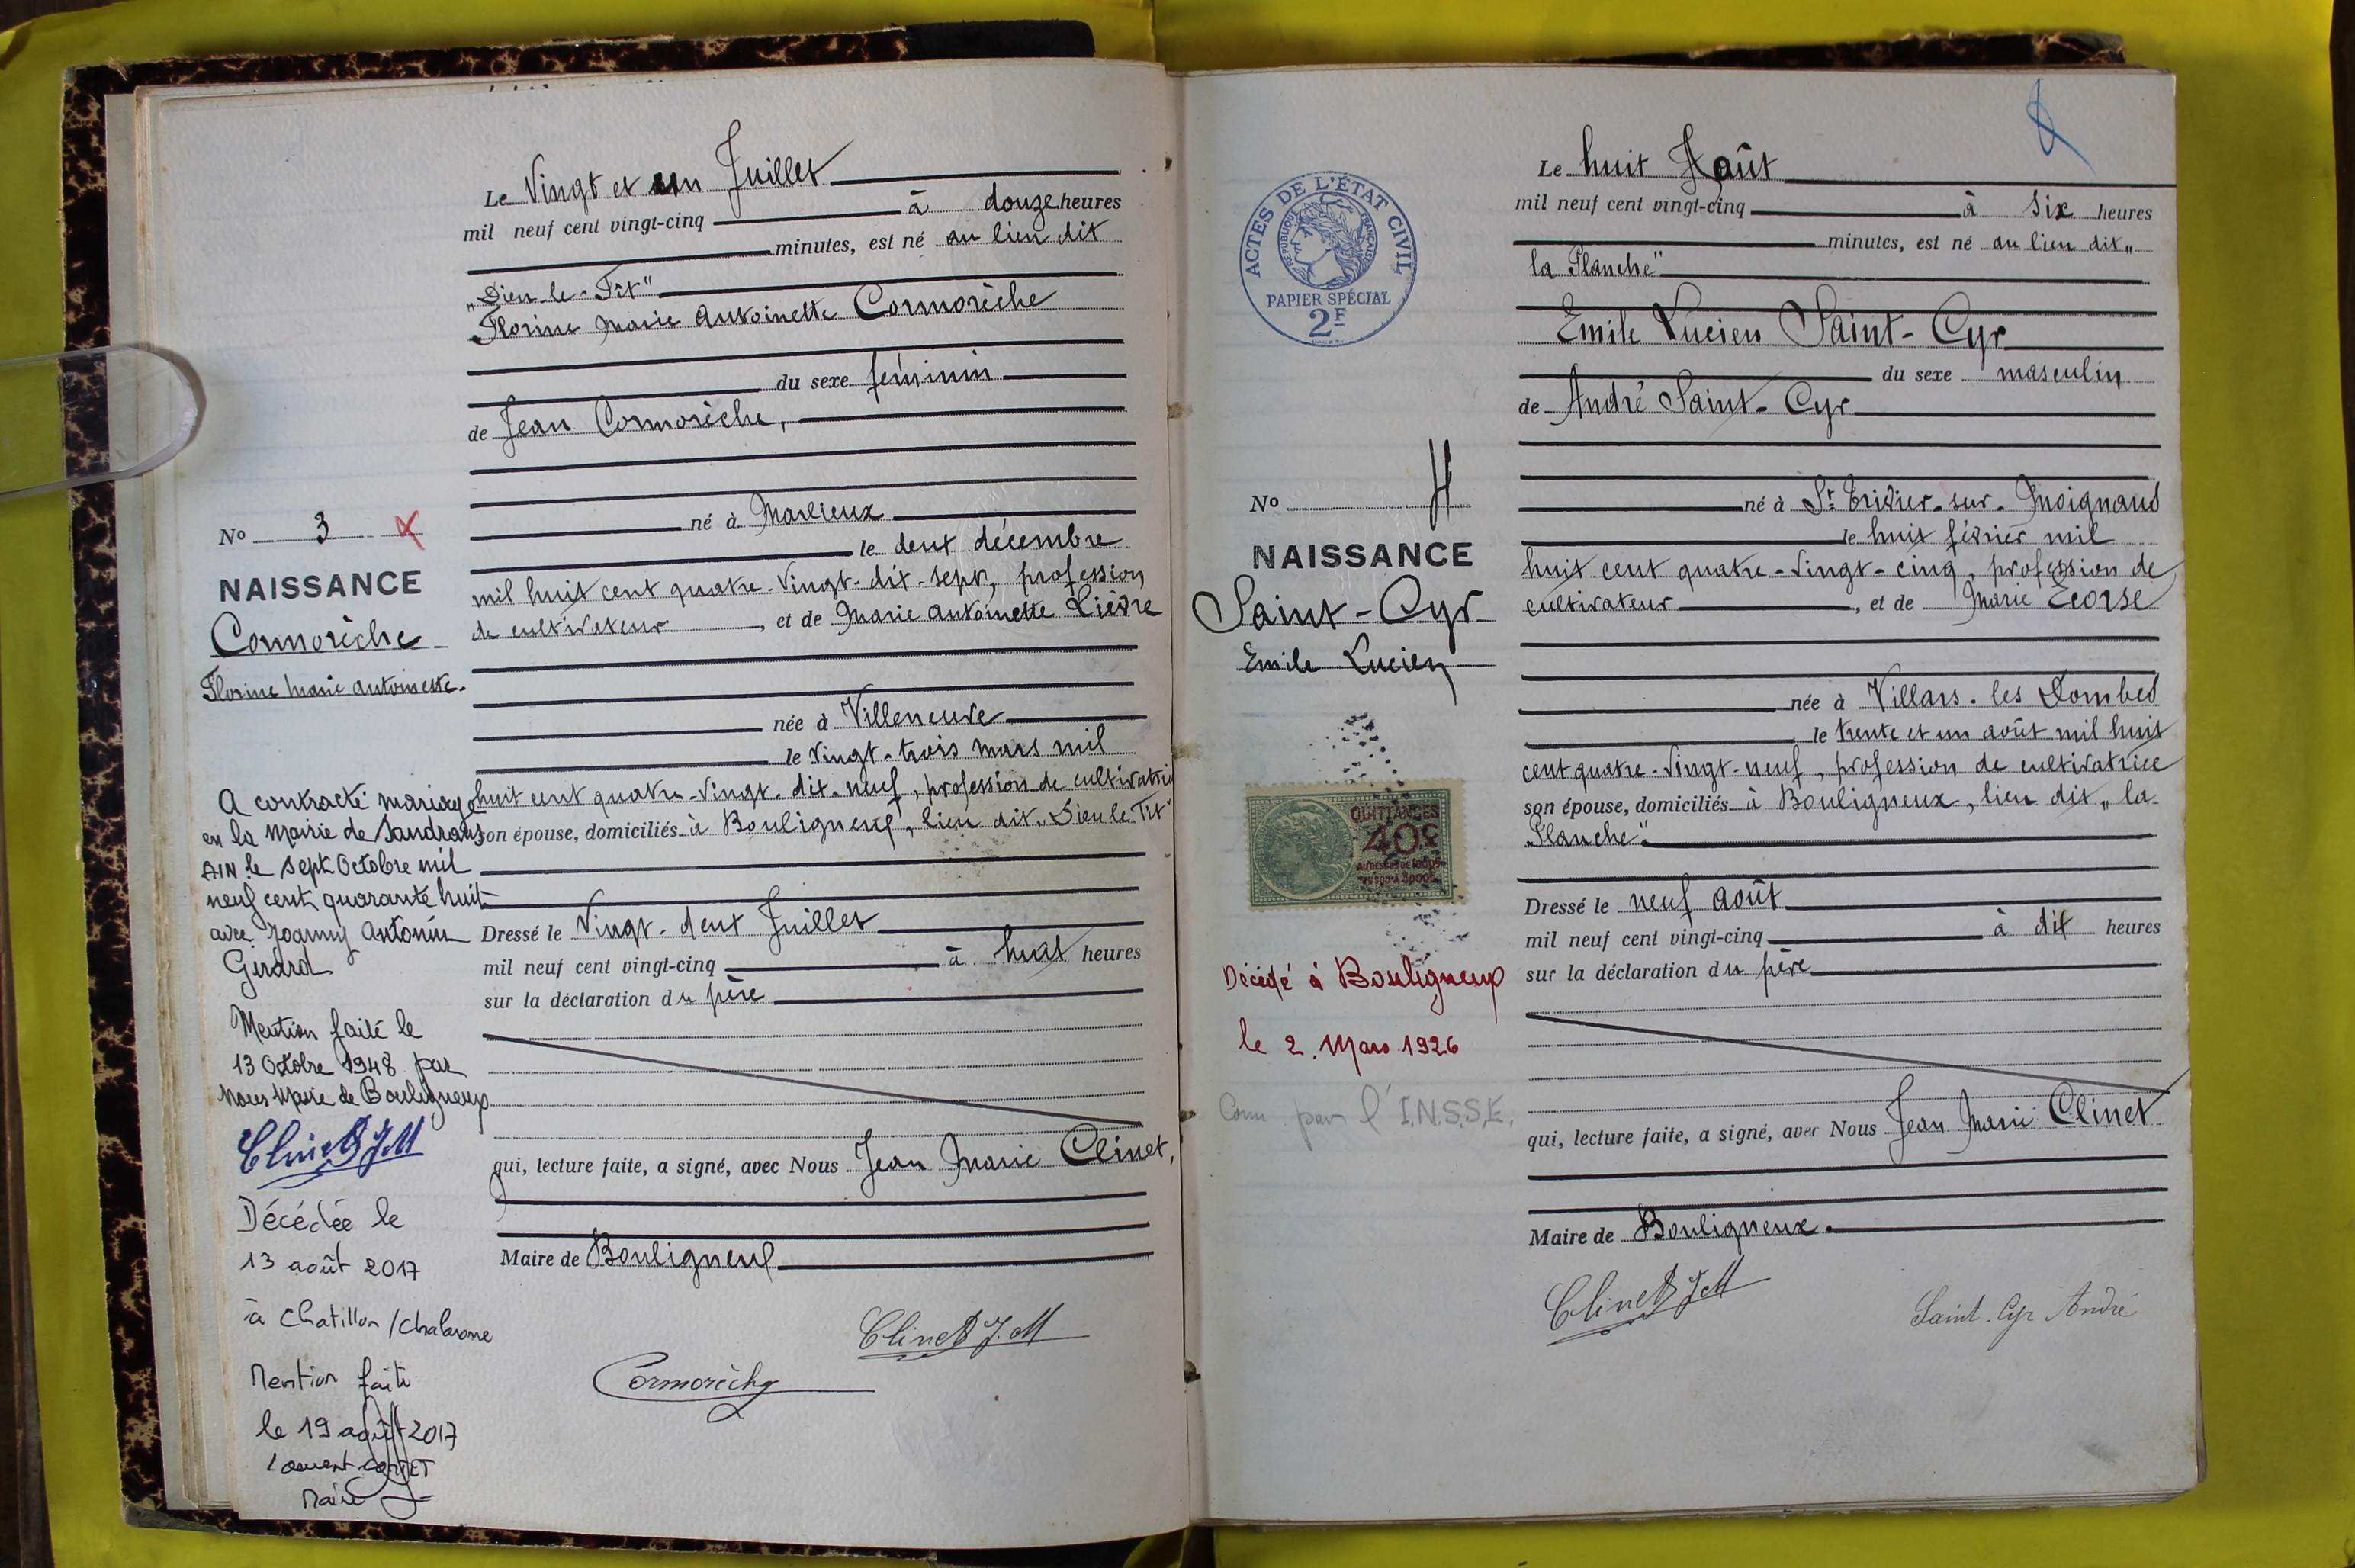 Le Vingt et un Juillet
mil neuf cent vingt-cinq à douze heures
minutes, est né au lieu dit
"Dieu-le-Fit"
Florine Marie Antoinette Cormorèche
du sexe féminin
de Jean Cormorèche,
né à Marlieux
le deux décembre
mil huit cent quatre-vingt-dix-sept, profession
de cultivateur, et de Marie Antoinette Lièvre
née à Villeneuve
le vingt-trois mars mil
huit cent quatre-vingt-dix-neuf, profession de cultivatrice
son épouse, domiciliés à Bouligneux, lieu dit "Dieu le Fit"
Dressé le Vingt-deux Juillet
mil neuf cent vingt-cinq à huit heures
sur la déclaration du père
qui, lecture faite, a signé, avec Nous Jean Marie Clinet,
Maire de Bouligneux
Clinet J.M
Cormorèche
No 3
NAISSANCE
Cormorèche
Florine Marie Antoinette.
A contracté mariage
en la Mairie de Sandrans
AIN le sept Octobre mil
neuf cent quarante huit
avec Joanny Antonin
Girard
Mention faite le
13 Octobre 1948 par
Nous Maire de Bouligneux
Clinet J M
Décédée le
13 août 2017
à Chatillon/Chalaronne
Mention faite
le 19 août 2017
Laurent
Maire
ACTES DE L'ÉTAT CIVIL
RÉPUBLIQUE FRANÇAISE
PAPIER SPÉCIAL
2F
No 4
NAISSANCE
Saint-Cyr
Emile Lucien
QUITTANCES
40c
Décédé à Bouligneux
le 2. Mars 1926
par l'I.N.S.S.E.
Le huit Août
mil neuf cent vingt-cinq à six heures
minutes, est né au lieu dit "
la Planche"
Emile Lucien Saint-Cyr
du sexe masculin
de André Saint-Cyr
né à St Trivier-sur-Moignans
le huit février mil
huit cent quatre-vingt-cinq, profession de
cultivateur, et de Marie Ecorse
née à Villars-les Dombes
le trente et un août mil huit
cent quatre-vingt-neuf, profession de cultivatrice
son épouse, domiciliés à Bouligneux, lieu dit "la
Planche".
Dressé le neuf août
mil neuf cent vingt-cinq à dix heures
sur la déclaration du père
qui, lecture faite, a signé, avec Nous Jean Marie Clinet
Maire de Bouligneux.
Clinet J M
Saint-Cyr André